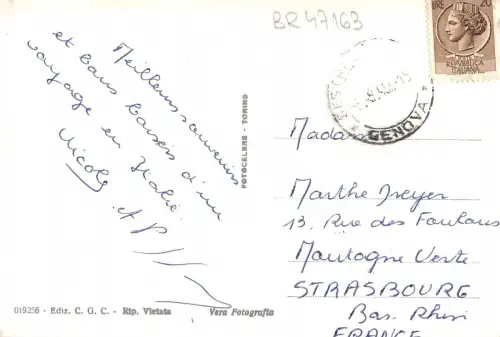 BR47163
LIRE 20
REPVBBLICA
ITALIANA
GENOVA
Meilleurs souvenirs
et bons baisers d'un
voyage en Italie.
Nicole et
FOTOCELERE - TORINO
Madame
Marthe Dreyer
13, Rue des Foulons
Montagne Verte
STRASBOURG
Bas. Rhin
FRANCE
019256 - Ediz. C. G. C. - Rip. Vietata
Vera Fotografia